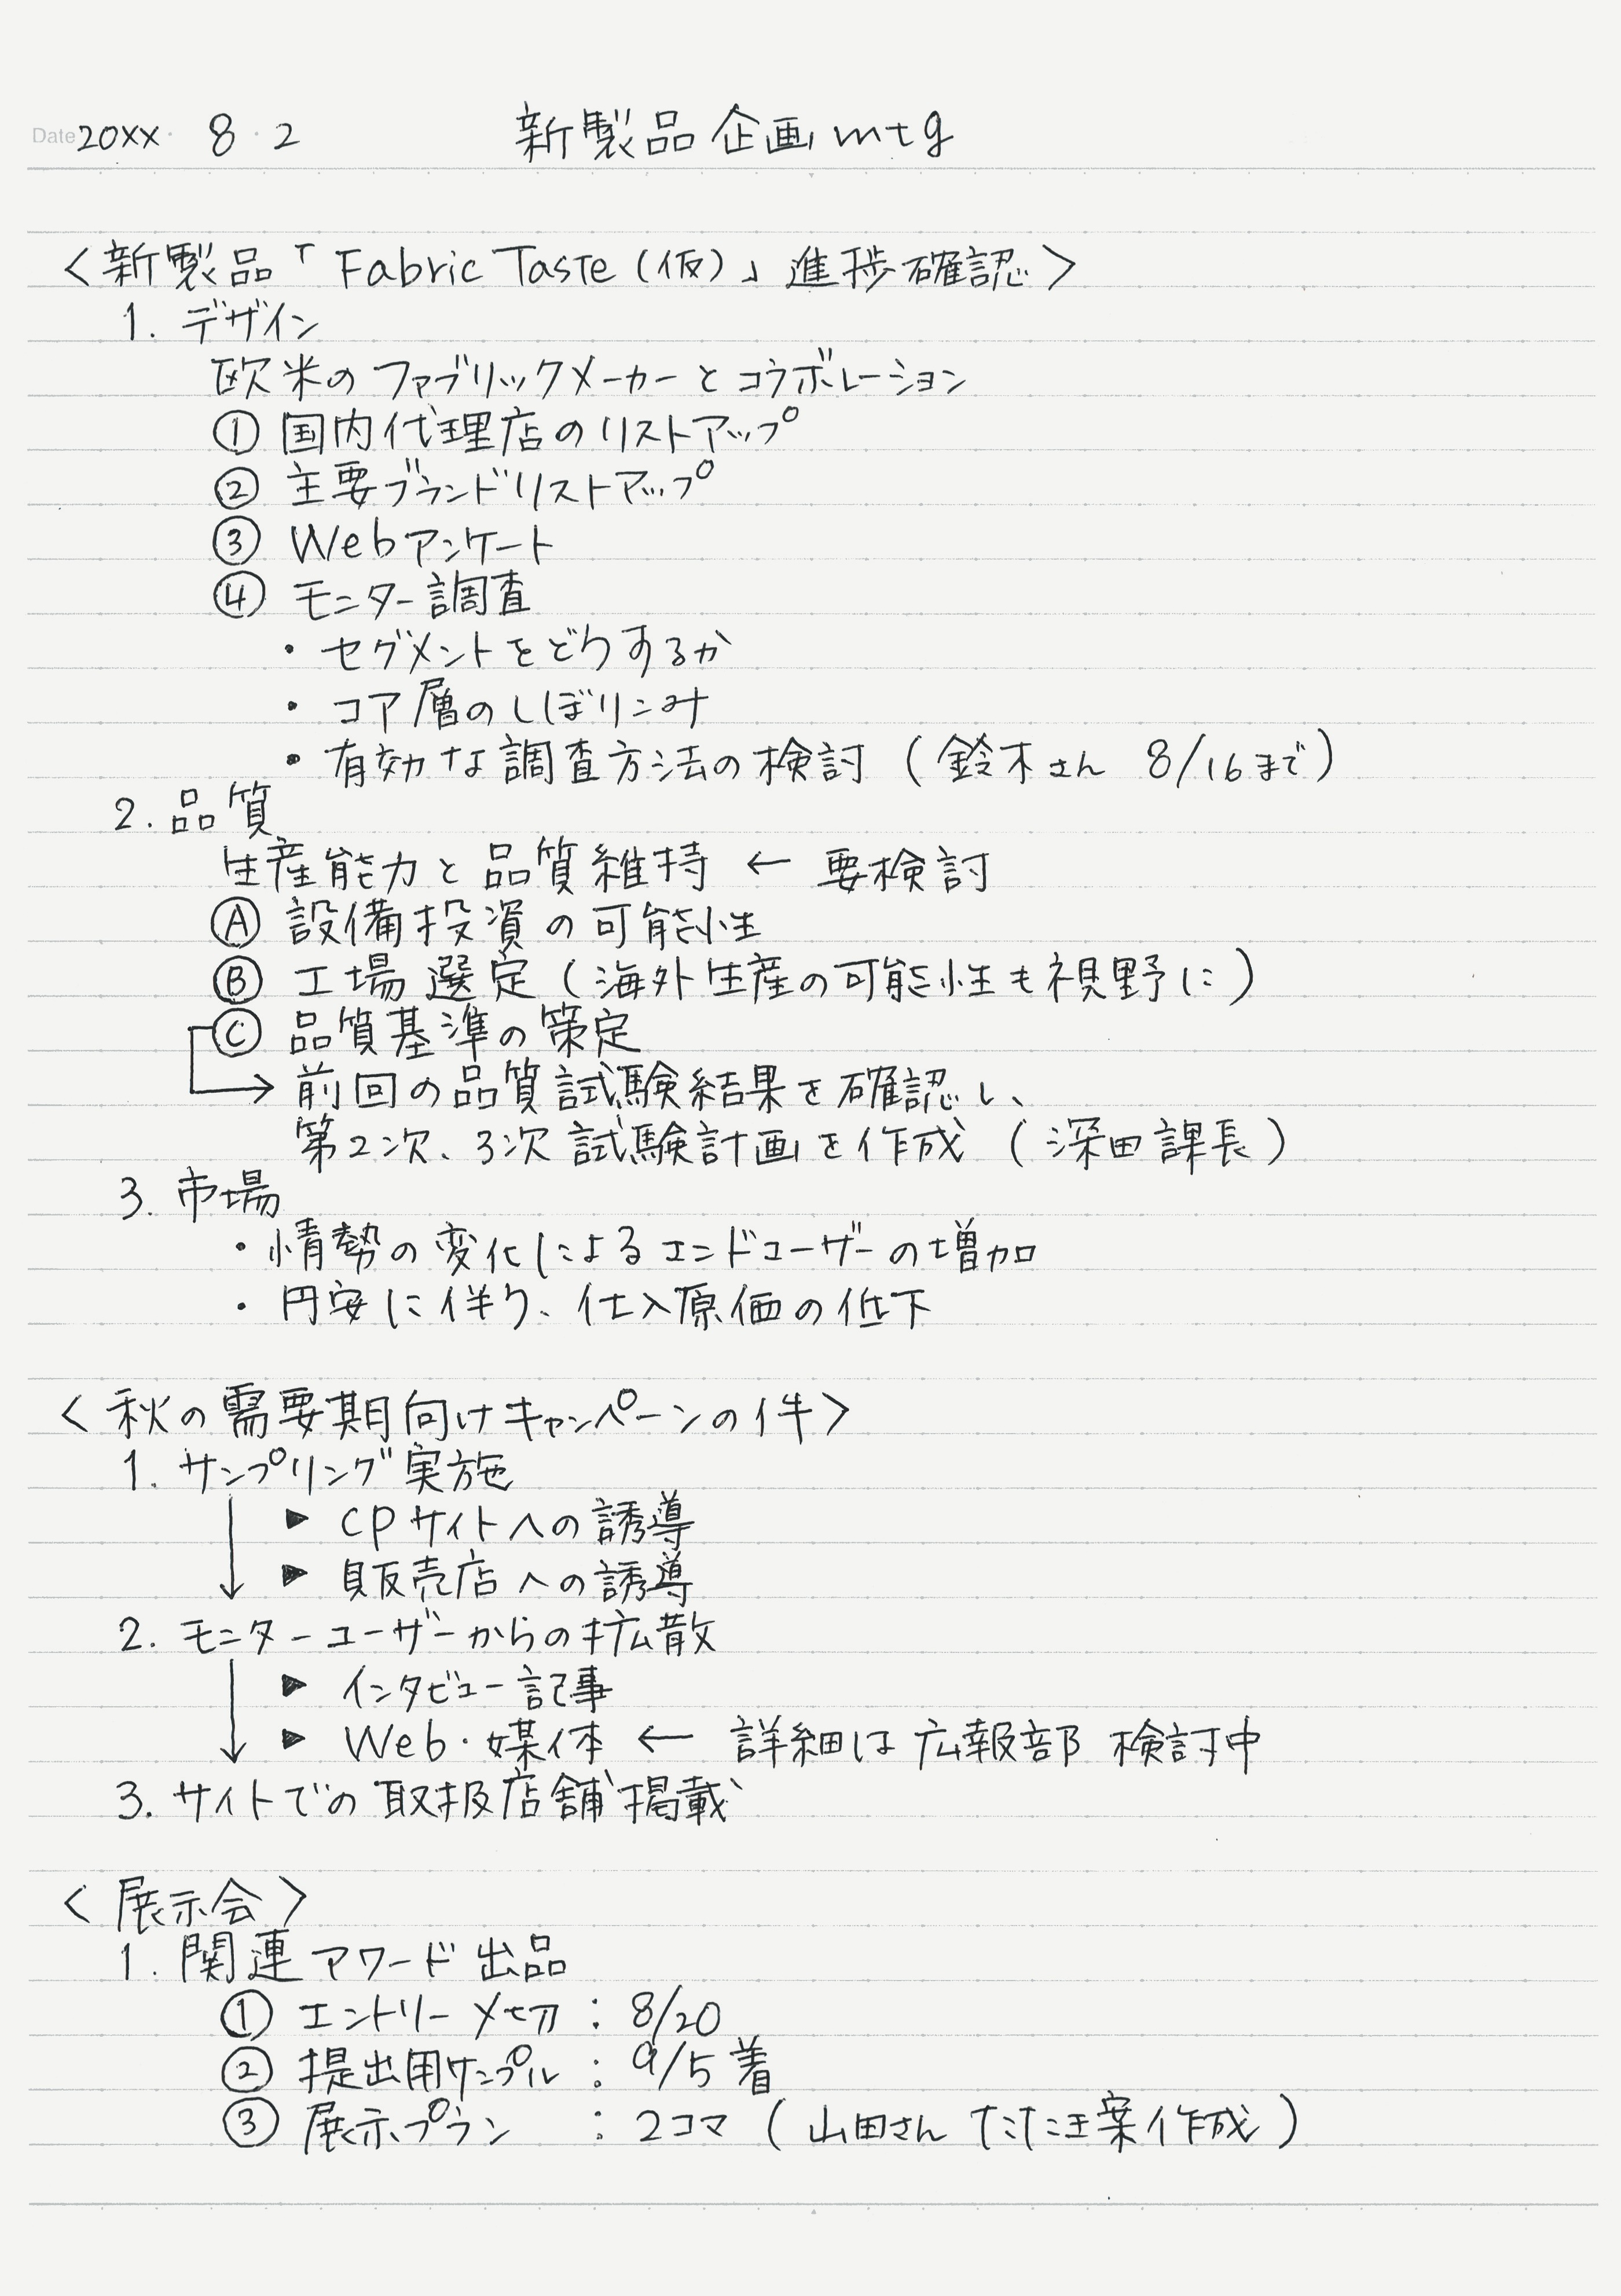 Date 20XX・8・2 新製品企画mtg
<新製品「Fabric Taste(仮)」進捗確認>
1. デザイン
欧米のファブリックメーカーとコラボレーション
① 国内代理店のリストアップ
② 主要ブランドリストアップ
③ Webアンケート
④ モニター調査
・セグメントをどうするか
・コア層のしぼりこみ
・有効な調査方法の検討(鈴木さん 8/16まで)
2. 品質
生産能力と品質維持 ← 要検討
Ⓐ 設備投資の可能性
Ⓑ 工場選定(海外生産の可能性も視野に)
Ⓒ 品質基準の策定
→ 前回の品質試験結果を確認し、
第2次、3次試験計画を作成(深田課長)
3. 市場
・情勢の変化によるエンドユーザーの増加
・円安に伴り、仕入原価の低下
<秋の需要期向けキャンペーンの件>
1. サンプリング実施
▶ CPサイトへの誘導
▶ 販売店への誘導
2. モニターユーザーからの拡散
▶ インタビュー記事
▶ Web・媒体 ← 詳細は広報部 検討中
3. サイトでの取扱店舗掲載
<展示会>
1. 関連アワード出品
① エントリー〆切:8/20
② 提出用サンプル:9/5着
③ 展示プラン:2コマ(山田さん たたき案作成)